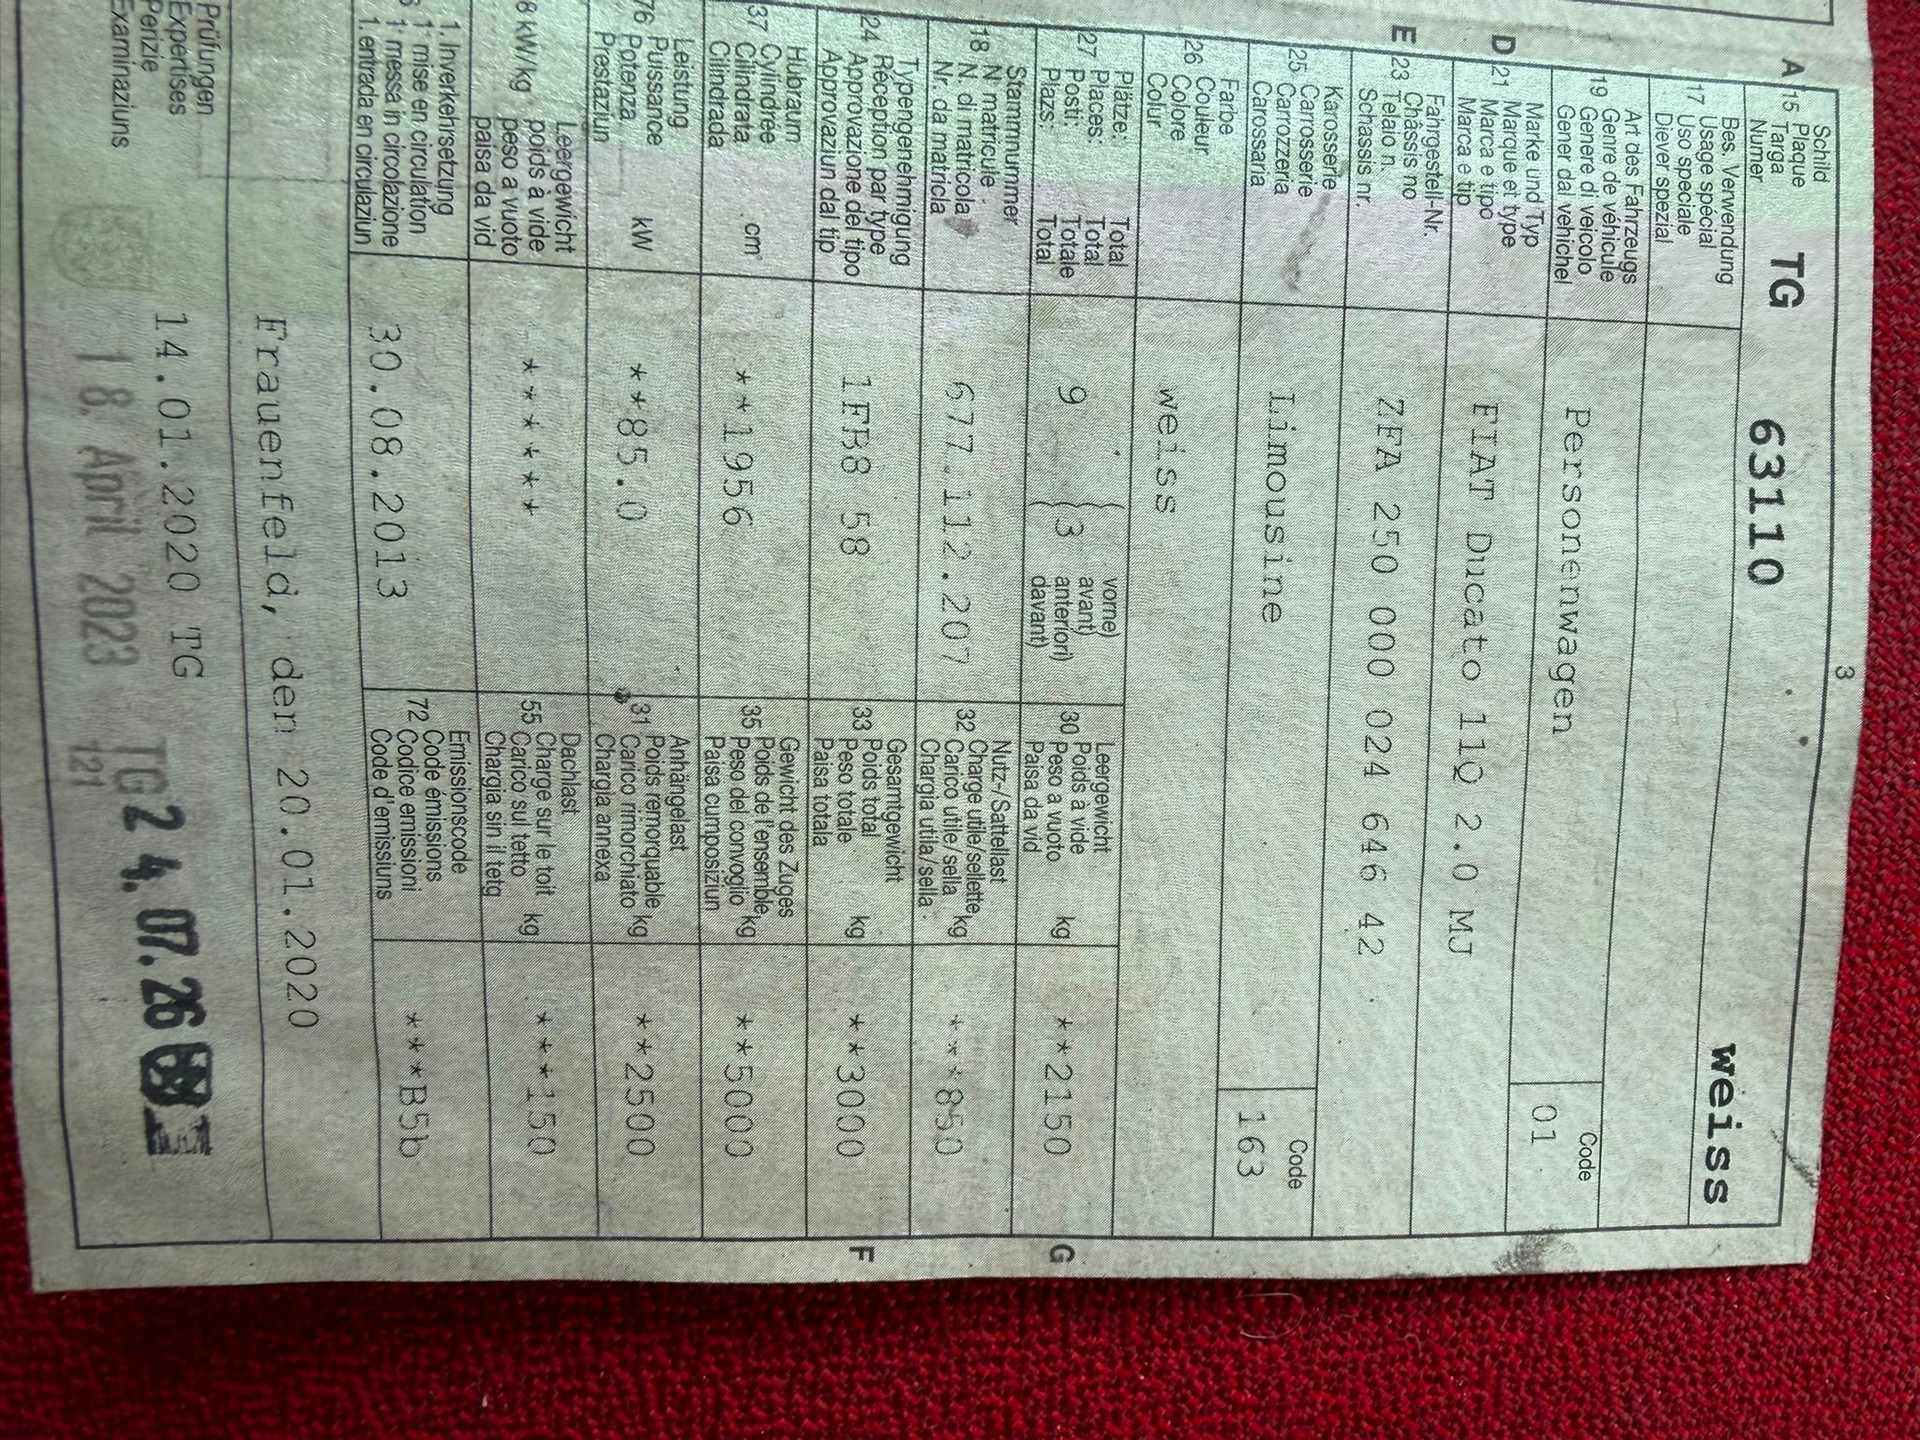 3
Schild
A 15 Plaque TG 63110 weiss
Targa
Numer
Bes. Verwendung
17 Usage spécial
Uso speciale
Diever spezial
Art des Fahrzeugs
19 Genre de véhicule Personenwagen Code
Genere di veicolo 01
Gener dal vehichel
Make und Typ
D 21 Marque et type FIAT Ducato 110 2.0 MJ
Marca e tipo
Marca e tip
Fahrgestell-Nr.
E 23 Châssis no ZFA 250 000 024 646 42
Telaio n.
Schassis nr.
Karosserie
25 Carrosserie Limousine Code
Carrozzeria 163
Carossaria
Farbe
26 Couleur weiss
Colore
Colur
Plätze: Total vorne)
27 Places: Total 9 (3 avant)
Posti: Totale anteriori)
Plazs: Total davant)
Leergewicht
30 Poids à vide kg **2150 G
Peso a vuoto
Paisa da vid
Stammnummer
18 N° matricule 677.112.207
N° di matricola
Nr. da matricla
Nutz-/Sattellast
32 Charge utile/sellette kg ***850
Carico utile/sella
Chargia utila/sella
Typengenehmigung
24 Réception par type 1FB8 58
Approvazione del tipo
Approvaziun dal tip
Gesamtgewicht
33 Poids total kg **3000 F
Peso totale
Paisa totala
Hubraum
37 Cylindrée cm³ **1956
Cilindrata
Cilindrada
Gewicht des Zuges
35 Poids de l'ensemble kg **5000
Peso del convoglio
Paisa cumposiziun
Leistung
76 Puissance kW **85.0
Potenza
Prestaziun
Anhängelast
31 Poids remorquable kg **2500
Carico rimorchiato
Chargia annexa
Leergewicht
8 kW/kg poids à vide ******
peso a vuoto
paisa da vid
Dachlast
55 Charge sur le toit kg ***150
Carico sul tetto
Chargia sin il tetg
1. Inverkehrsetzung
1ʳᵉ mise en circulation 30.08.2013
1ª messa in circolazione
1. entrada en circulaziun
Emissionscode
72 Code émissions ***B5b
Codice emissioni
Code d'emissiuns
Frauenfeld, den 20.01.2020
Prüfungen
Expertises
Perizie
Examinaziuns
14.01.2020 TG
18. April 2023 TG
121
24.07.26